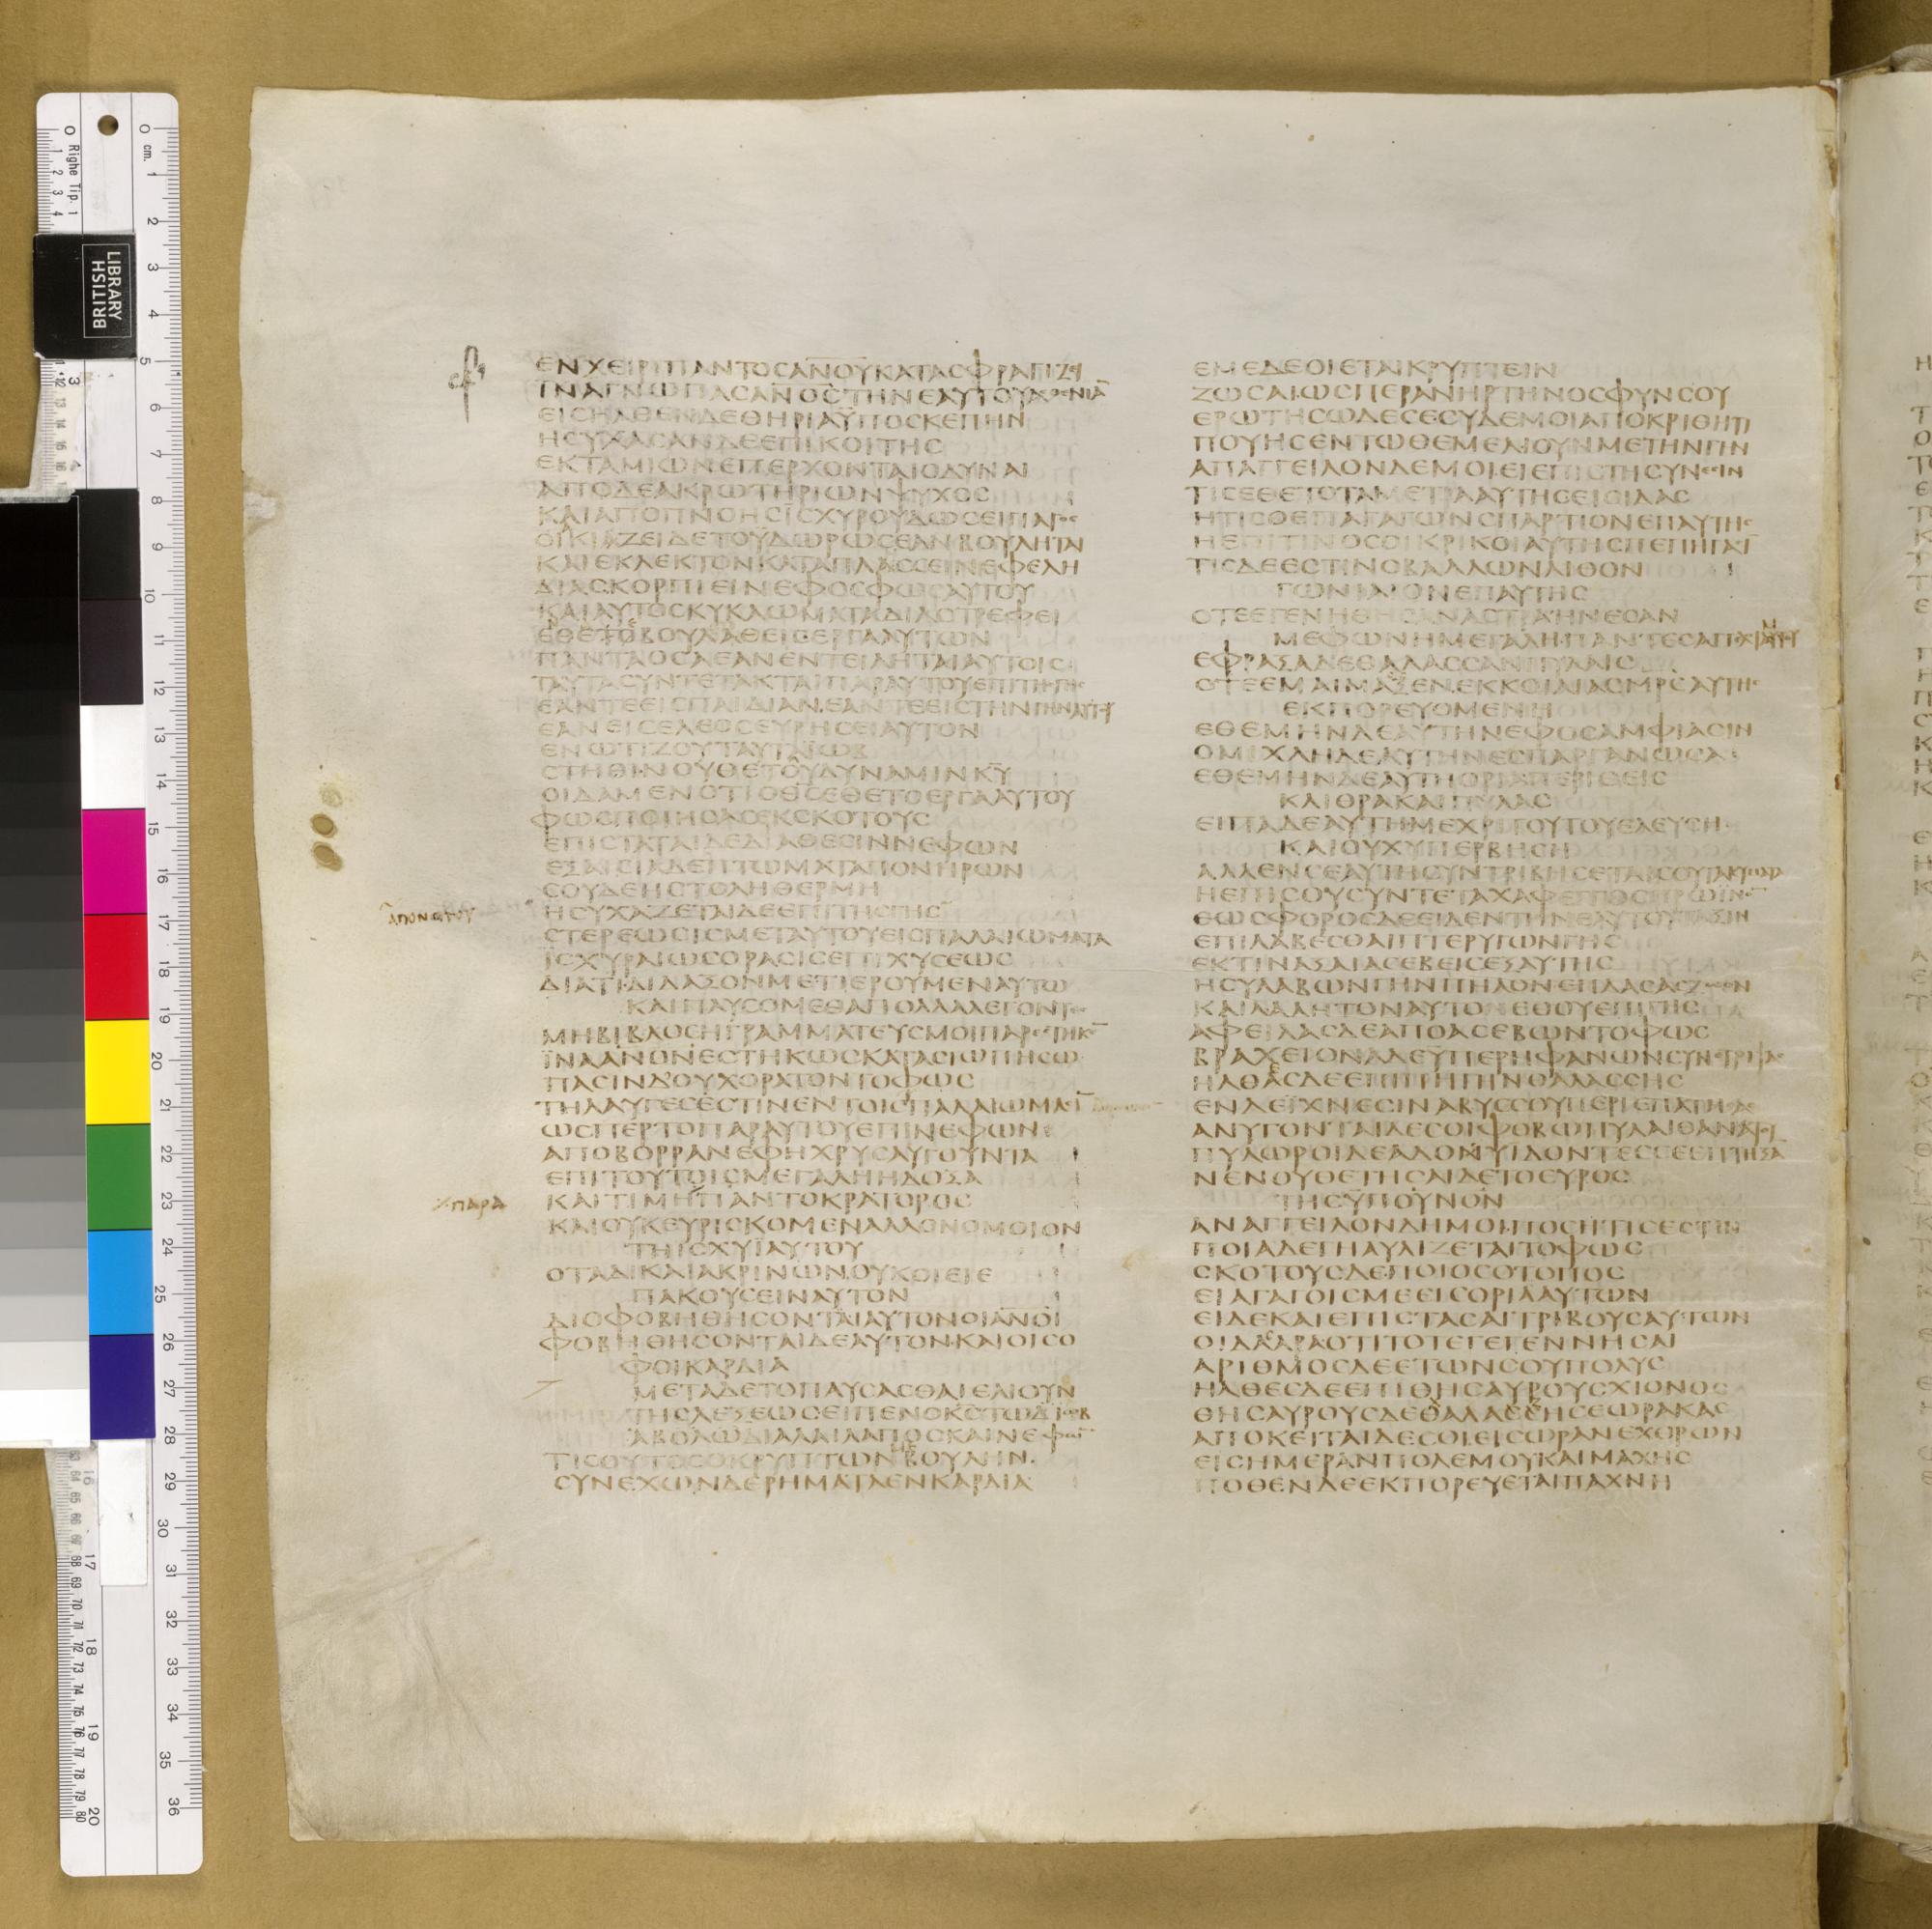 ΕΝΧΕΙΡΙΠΑΝΤΟΣΑΝΟΥΚΑΤΑΣΦΡΑΓΙΖΙ
ΙΝΑΓΝΩΠΑΣΑΝΟΣΤΗΝΕΑΥΤΟΥΑΣΘΕΝΙΑ
ΕΙΣΗΛΘΕΝΔΕΘΗΡΙΑΥΠΟΣΚΕΠΗΝ
ΗΣΥΧΑΣΑΝΔΕΕΠΙΚΟΙΤΗΣ
ΕΚΤΑΜΙΩΝΕΠΕΡΧΟΝΤΑΙΟΔΥΝΑΙ
ΑΠΟΔΕΑΚΡΩΤΗΡΙΩΝΨΥΧΟΣ
ΚΑΙΑΠΟΠΝΟΗΣΙΣΧΥΡΟΥΔΩΣΕΙΠΑΓΟΣ
ΟΙΚΙΑΖΕΙΔΕΤΟΥΔΩΡΩΣΕΑΝΒΟΥΛΗΤΑΙ
ΚΑΙΕΚΛΕΚΤΟΝΚΑΤΑΠΛΑΣΣΕΙΝΕΦΕΛΗ
ΔΙΑΣΚΟΡΠΙΕΙΝΕΦΟΣΦΩΣΑΥΤΟΥ
ΚΑΙΑΥΤΟΣΚΥΚΛΩΜΑΤΑΔΙΑΣΤΡΕΦΕΙ
ΕΘΕΤΟΒΟΥΛΑΘΕΙΣΕΡΓΑΑΥΤΩΝ
ΠΑΝΤΑΟΣΑΕΑΝΕΝΤΕΙΛΗΤΑΙΑΥΤΟΙΣ
ΤΑΥΤΑΣΥΝΤΕΤΑΚΤΑΙΠΑΡΑΥΤΟΥΕΠΙΤΗΣΓΗΣ
ΕΑΝΤΕΕΙΣΠΑΙΔΙΑΝΕΑΝΤΕΕΙΣΤΗΝΓΗΝΑΥΤΟΥ
ΕΑΝΕΙΣΕΛΕΟΣΕΥΡΗΣΕΙΑΥΤΟΝ
ΕΝΩΤΙΖΟΥΤΑΥΤΑΙΩΒ
ΣΤΗΘΙΝΟΥΘΕΤΟΥΔΥΝΑΜΙΝΚΥ
ΟΙΔΑΜΕΝΟΤΙΟΘΣΕΘΕΤΟΕΡΓΑΑΥΤΟΥ
ΦΩΣΠΟΙΗΣΑΣΕΚΣΚΟΤΟΥΣ
ΕΠΙΣΤΑΤΑΙΔΕΔΙΑΘΕΣΙΝΝΕΦΩΝ
ΕΞΑΙΣΙΑΔΕΠΤΩΜΑΤΑΠΟΝΗΡΩΝ
ΣΟΥΔΕΗΣΤΟΛΗΘΕΡΜΗ
ΑΠΟΝΟΤΟΥ
ΗΣΥΧΑΖΕΤΑΙΔΕΕΠΙΤΗΣΓΗΣ
ΣΤΕΡΕΩΣΙΣΜΕΤΑΥΤΟΥΕΙΣΠΑΛΑΙΩΜΑΤΑ
ΙΣΧΥΡΑΙΩΣΟΡΑΣΙΣΕΠΙΧΥΣΕΩΣ
ΔΙΑΤΙΔΙΔΑΞΟΝΜΕΤΙΕΡΟΥΜΕΝΑΥΤΩ
ΚΑΙΠΑΥΣΟΜΕΘΑΠΟΛΛΑΛΕΓΟΝΤΕΣ
ΜΗΒΙΒΛΟΣΗΓΡΑΜΜΑΤΕΥΣΜΟΙΠΑΡΕΣΤΗΚΕΝ
ΙΝΑΑΝΟΝΕΣΤΗΚΩΣΚΑΤΑΣΙΩΠΗΣΩ
ΠΑΣΙΝΔΟΥΧΟΡΑΤΟΝΤΟΦΩΣ
ΤΗΛΑΥΓΕΣΕΣΤΙΝΕΝΤΟΙΣΠΑΛΑΙΩΜΑΣΙ
ΩΣΠΕΡΤΟΠΑΡΑΥΤΟΥΕΠΙΝΕΦΩΝ
ΑΠΟΒΟΡΡΑΝΕΦΗΧΡΥΣΑΥΓΟΥΝΤΑ
ΕΠΙΤΟΥΤΟΙΣΜΕΓΑΛΗΗΔΟΞΑ
ΠΑΡΑ
ΚΑΙΤΙΜΗΠΑΝΤΟΚΡΑΤΟΡΟΣ
ΚΑΙΟΥΚΕΥΡΙΣΚΟΜΕΝΑΛΛΟΝΟΜΟΙΟΝ
ΤΗΙΣΧΥΙΑΥΤΟΥ
ΟΤΑΔΙΚΑΙΑΚΡΙΝΩΝΟΥΚΟΙΕΙΕ
ΠΑΚΟΥΣΕΙΝΑΥΤΟΝ
ΔΙΟΦΟΒΗΘΗΣΟΝΤΑΙΑΥΤΟΝΟΙΑΝΟΙ
ΦΟΒΗΘΗΣΟΝΤΑΙΔΕΑΥΤΟΝΚΑΙΟΙΣΟ
ΦΟΙΚΑΡΔΙΑ
ΜΕΤΑΔΕΤΟΠΑΥΣΑΣΘΑΙΕΛΙΟΥΝ
ΤΗΣΛΕΞΕΩΣΕΙΠΕΝΟΚΣΤΩΙΩΒ
ΔΙΑΛΑΙΛΑΠΟΣΚΑΙΝΕΦΩΝ
ΤΙΣΟΥΤΟΣΟΚΡΥΠΤΩΝΜΕΒΟΥΛΗΝ
ΣΥΝΕΧΩΝΔΕΡΗΜΑΤΑΕΝΚΑΡΔΙΑ
ΕΜΕΔΕΟΙΕΤΑΙΚΡΥΠΤΕΙΝ
ΖΩΣΑΙΩΣΠΕΡΑΝΗΡΤΗΝΟΣΦΥΝΣΟΥ
ΕΡΩΤΗΣΩΔΕΣΕΣΥΔΕΜΟΙΑΠΟΚΡΙΘΗΤΙ
ΠΟΥΗΣΕΝΤΩΘΕΜΕΛΙΟΥΝΜΕΤΗΝΓΗΝ
ΑΠΑΓΓΕΙΛΟΝΔΕΜΟΙΕΙΕΠΙΣΤΗΣΥΝΕΣΙΝ
ΤΙΣΕΘΕΤΟΤΑΜΕΤΡΑΑΥΤΗΣΕΙΟΙΔΑΣ
ΗΤΙΣΟΕΠΑΓΑΓΩΝΣΠΑΡΤΙΟΝΕΠΑΥΤΗΣ
ΗΕΠΙΤΙΝΟΣΟΙΚΡΙΚΟΙΑΥΤΗΣΠΕΠΗΓΑΣΙ
ΤΙΣΔΕΕΣΤΙΝΟΒΑΛΛΩΝΛΙΘΟΝ
ΓΩΝΙΑΙΟΝΕΠΑΥΤΗΣ
ΟΤΕΕΓΕΝΗΘΗΣΑΝΑΣΤΡΑΗΝΕΣΑΝ
ΜΕΦΩΝΗΜΕΓΑΛΗΠΑΝΤΕΣΑΓΓΕΛΟΙΜΟΥ
ΕΦΡΑΞΑΔΕΘΑΛΑΣΣΑΝΠΥΛΑΙΣ
ΟΤΕΕΜΑΙΜΑΞΕΝΕΚΚΟΙΛΙΑΣΜΡΣΑΥΤΗΣ
ΕΚΠΟΡΕΥΟΜΕΝΗ
ΕΘΕΜΗΝΔΕΑΥΤΗΝΕΦΟΣΑΜΦΙΑΣΙΝ
ΟΜΙΧΛΗΔΕΑΥΤΗΝΕΣΠΑΡΓΑΝΩΣΑ
ΕΘΕΜΗΝΔΕΑΥΤΗΟΡΙΑΠΕΡΙΘΕΙΣ
ΚΛΙΘΡΑΚΑΙΠΥΛΑΣ
ΕΙΠΑΔΕΑΥΤΗΜΕΧΡΙΤΟΥΤΟΥΕΛΕΥΣΗ
ΚΑΙΟΥΧΥΠΕΡΒΗΣΗ
ΑΛΛΕΝΣΕΑΥΤΗΣΥΝΤΡΙΒΗΣΕΤΑΙΣΟΥΤΑΚΥΜΑΤΑ
ΗΕΠΙΣΟΥΣΥΝΤΕΤΑΧΑΦΕΓΓΟΣΠΡΩΙΝΟΝ
ΕΩΣΦΟΡΟΣΔΕΕΙΔΕΝΤΗΝΕΑΥΤΟΥΤΑΞΙΝ
ΕΠΙΛΑΒΕΣΘΑΙΠΤΕΡΥΓΩΝΓΗΣ
ΕΚΤΙΝΑΞΑΙΑΣΕΒΕΙΣΕΞΑΥΤΗΣ
ΗΣΥΛΑΒΩΝΓΗΝΠΗΛΟΝΕΠΛΑΣΑΣΖΩΟΝ
ΚΑΙΛΑΛΗΤΟΝΑΥΤΟΝΕΘΟΥΕΠΙΓΗΣ
ΑΦΕΙΛΑΣΔΕΑΠΟΑΣΕΒΩΝΤΟΦΩΣ
ΒΡΑΧΕΙΟΝΑΔΕΥΠΕΡΗΦΑΝΩΝΣΥΝΕΤΡΙΨΑΣ
ΗΛΘΑΣΔΕΕΠΙΠΗΓΗΝΘΑΛΑΣΣΗΣ
ΕΝΔΕΙΧΝΕΣΙΝΑΒΥΣΣΟΥΠΕΡΙΕΠΑΤΗΣΑΣ
ΑΝΥΓΟΝΤΑΙΔΕΣΟΙΦΟΒΩΠΥΛΑΙΘΑΝΑΤΟΥ
ΠΥΛΩΡΟΙΔΕΑΔΟΥΙΔΟΝΤΕΣΣΕΕΠΤΗΞΑ
ΝΕΝΟΥΘΕΤΗΣΑΙΔΕΤΟΕΥΡΟΣ
ΤΗΣΥΠΟΥΝΟΝ
ΑΝΑΓΓΕΙΛΟΝΔΗΜΟΙΠΟΣΗΤΙΣΕΣΤΙΝ
ΠΟΙΑΔΕΓΗΑΥΛΙΖΕΤΑΙΤΟΦΩΣ
ΣΚΟΤΟΥΣΔΕΠΟΙΟΣΟΤΟΠΟΣ
ΕΙΑΓΑΓΟΙΣΜΕΕΙΣΟΡΙΑΑΥΤΩΝ
ΕΙΔΕΚΑΙΕΠΙΣΤΑΣΑΙΤΡΙΒΟΥΣΑΥΤΩΝ
ΟΙΔΑΑΡΑΟΤΙΤΟΤΕΓΕΓΕΝΝΗΣΑΙ
ΑΡΙΘΜΟΣΔΕΕΤΩΝΣΟΥΠΟΛΥΣ
ΗΛΘΕΣΔΕΕΠΙΘΗΣΑΥΡΟΥΣΧΙΟΝΟΣ
ΘΗΣΑΥΡΟΥΣΔΕΘΑΛΑΣΣΗΣΕΩΡΑΚΑΣ
ΑΠΟΚΕΙΤΑΙΔΕΣΟΙΕΙΣΩΡΑΝΕΧΘΡΩΝ
ΕΙΣΗΜΕΡΑΝΠΟΛΕΜΟΥΚΑΙΜΑΧΗΣ
ΠΟΘΕΝΔΕΕΚΠΟΡΕΥΕΤΑΙΠΑΧΝΗ
LIBRARY
BRITISH
Righe Tip. 1
cm.